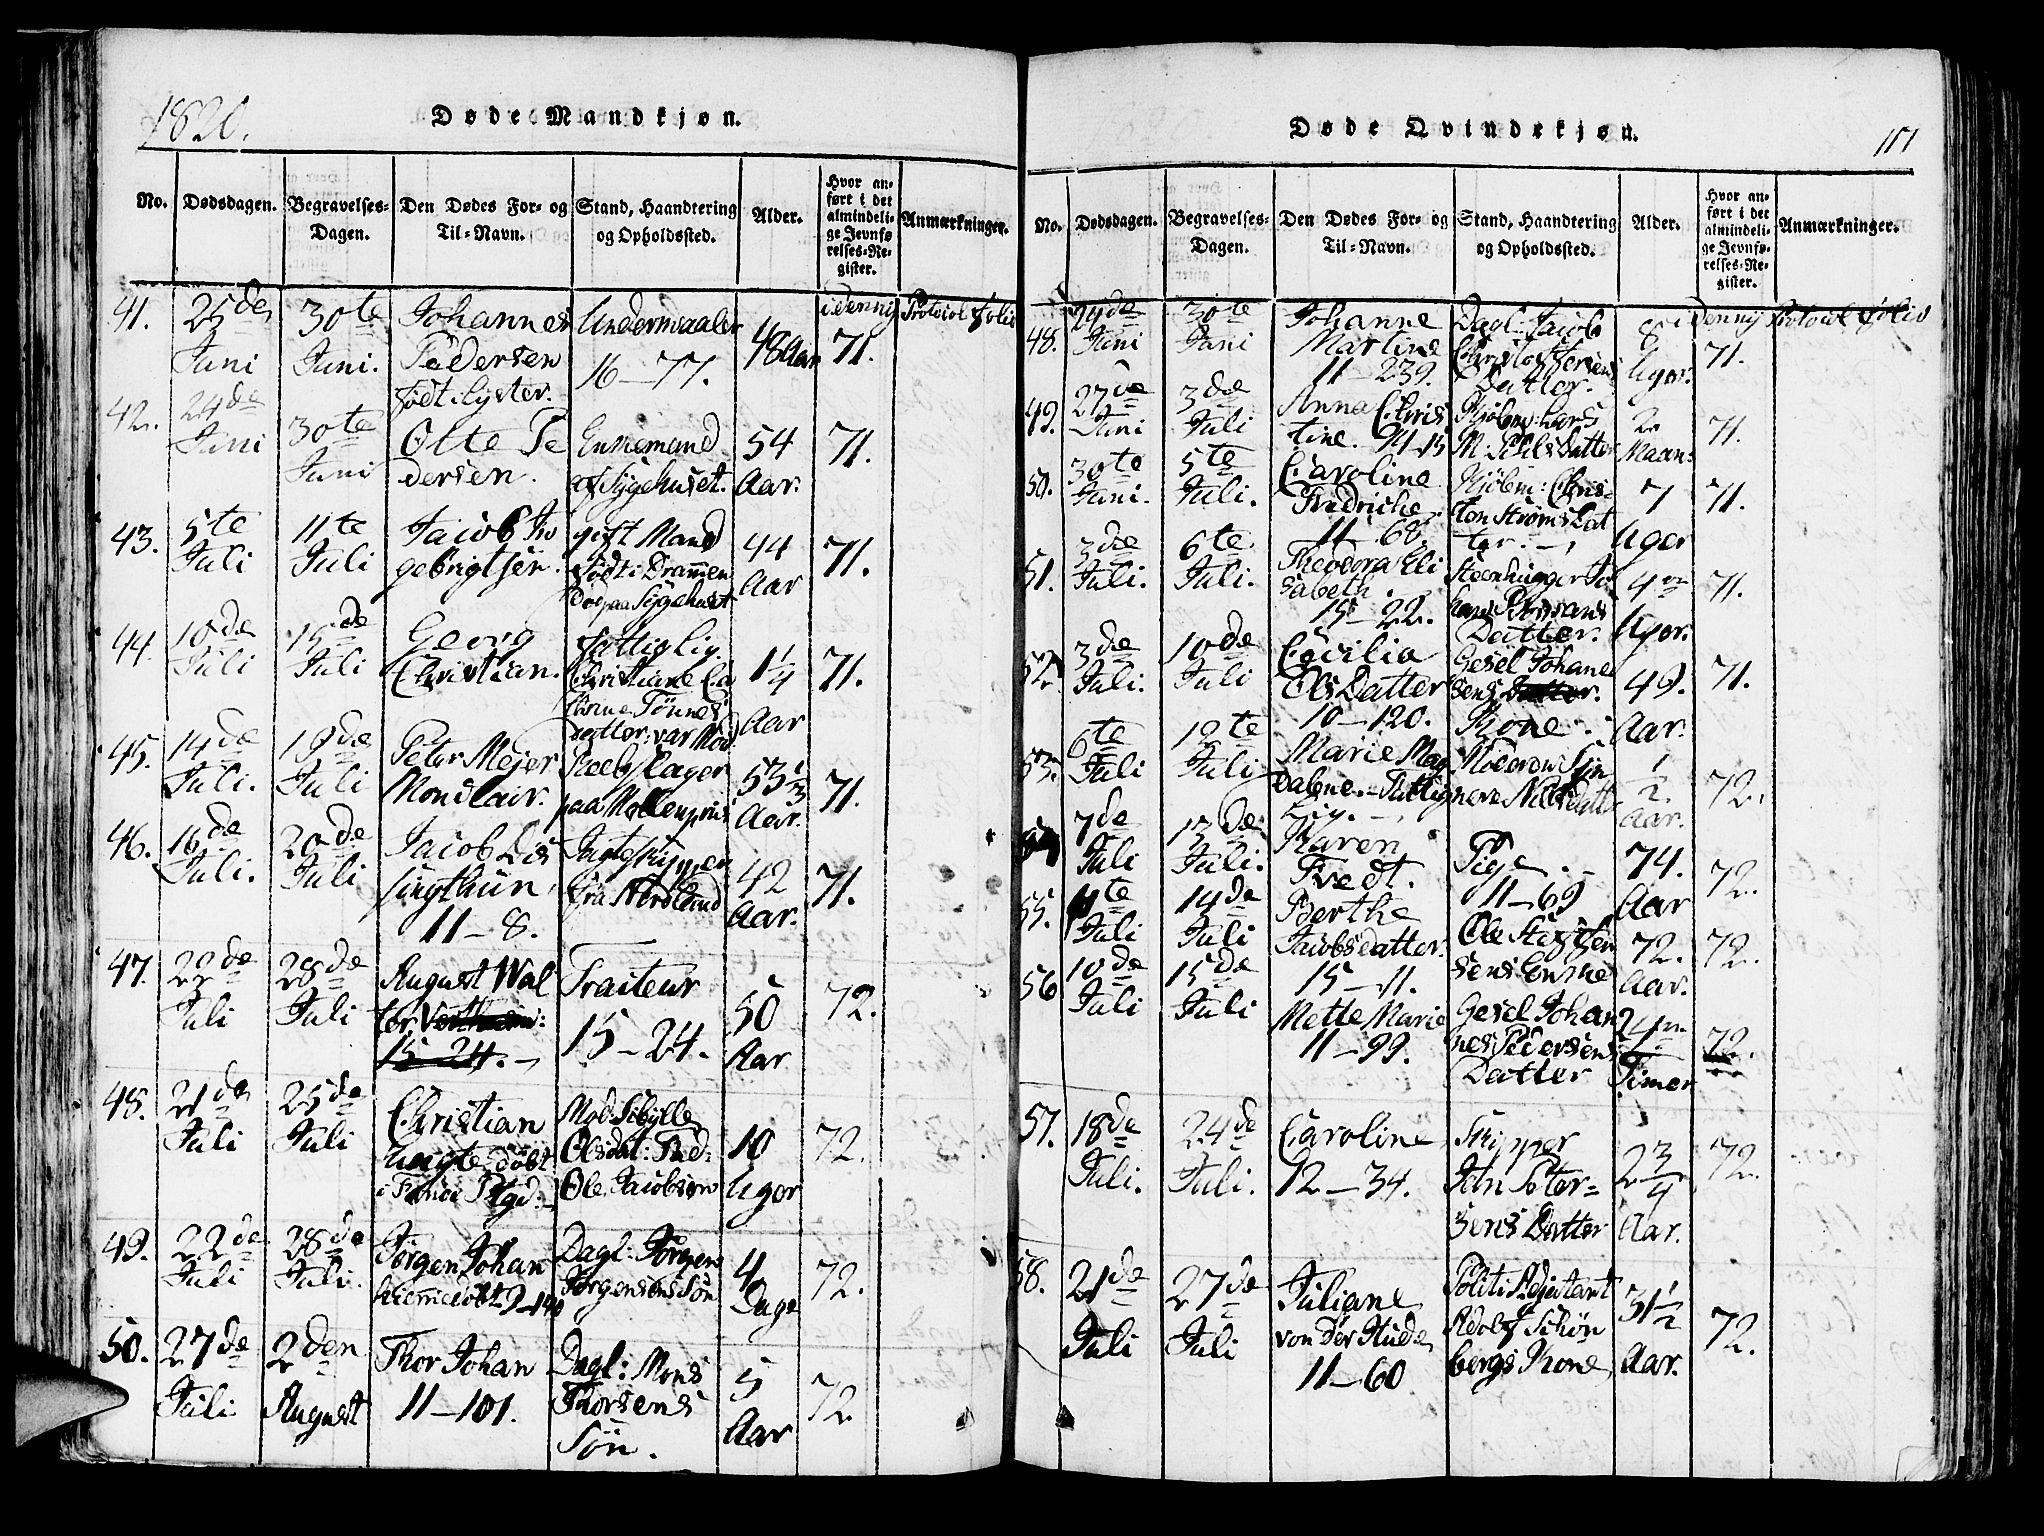 1820.
Døde Mandkjøn.
No.
Dødsdagen.
Begravelses-
Dagen.
Den Dødes For- og
Til-Navn.
Stand, Haandtering
og Opholdssted.
Alder.
Hvor an-
ført i det
almindeli-
ge Jevnfø-
relses-Re-
gister.
Anmærkninger.
idenny Protocol Folio
41.
25de
Juni
30te
Juni.
Johannes
Pedersen
født i Lyster.
Undermaaler
16-77.
48 Aar
71.
42.
24de
Juni
30te
Juni
Olte Pe
dersen.
Enkemand
af Sygehuset.
54
Aar.
71.
43.
5te
Juli
11te
Juli
Jacob In
gebrigtsen.
gift Mand
født i Drammen
Død paa Sygehuset
44
Aar
71.
44.
10de
Juli
15de
Juli
Georg
Christian.
Fattiglig.
Christiane Ca
thrine Tønnes
datter, var Mod.
1 1/4
Aar
71.
45.
14de
Juli.
19de
Juli
Peter Mejer
Mondlair.
Reebslager
paa Møllenpriis
53 1/3
Aar.
71.
46.
16de
Juli.
20de
Juli
Jacob Dis
singthun,
11-8.
Jagteskipper
fra Nordland
42
Aar.
71.
47.
22de
Juli
28de
Juli
August Wal
ter
15-24.
Traiteur
15-24.
50
Aar
72.
48.
21de
Juli
25de
Juli
Christian
uægte døbt
Mod. Sibylle
Olsdat: Fad-
Ole Jacobsen
10
Uger
72.
49.
22de
Juli
28de
Juli.
Jørgen Johan
hiemmedøbt 9-140
Dagl: Jørgen
Jørgensens Søn
4
Dage
72.
50.
27de
Juli
2den
August
Thor Johan
11-101.
Dagl: Mons
Thorsens
Søn.
5
Aar
72.
Døde Qvindekjøn.
No.
Dødsdagen.
Begravelses-
Dagen.
Den Dødes For- og
Til-Navn.
Stand, Haandtering
og Opholdssted.
Alder.
Hvor an-
ført i det
almindeli-
ge Jevnfø-
relses-Re-
gister.
Anmærkninger.
idenny Protocol Folio
48.
Juni
30te
Juni
Johanne
Martine
11-239.
Dagl: Jacob
Christophersens
Datter.
8
Uger.
71.
49.
27de
Juni
3de
Juli
Anna Chris
tine.
Kjøbm: Lars
2
Maan:
71.
50.
30te
Juni.
5te
Juli.
Caroline
Fredriche
11-68.
Kjøbm: Chris-
ten Strøms Dat
ter.
7
Uger
71.
51.
3de
Juli.
6te
Juli.
Theodora Eli
sabeth.
15-22.
Steenhugger Jo
Datter.
4
Uger.
71.
52.
3de
Juli.
10de
Juli
Cicilia
Ols Datter
10-120.
Gesel Johane
sens
Kone.
49.
Aar.
71.
53.
6te
Juli
12te
Juli
Marie Mag
dalene. - Fattig
Lig.
Moderen Syn
neve Nilsdatt
1/2
Aar.
72.
7de
Juli
13de
Juli.
Karen
Tvedt.
Pige.
11-69
74.
Aar
72.
55.
Juli
14de
Juli
Berthe
Jacobsdatter.
15-11.
Ole Steffen
sens Enke
72.
Aar.
72.
56
10de
Juli
15de
Juli
Mette Marie
11-99.
Gesel Johan
nes Pedersens
Datter
Timer
72.
57.
18de
Juli.
24de
Juli.
Caroline
12-34.
Skipper
John Peter-
sens Datter
2 3/4
Aar.
72.
58.
21de
Juli
27de
Juli
Juliane
von der Hude
11-60
Politi Adjutant
Adolf Schøn
bergs Kone
31 1/2
Aar.
72.